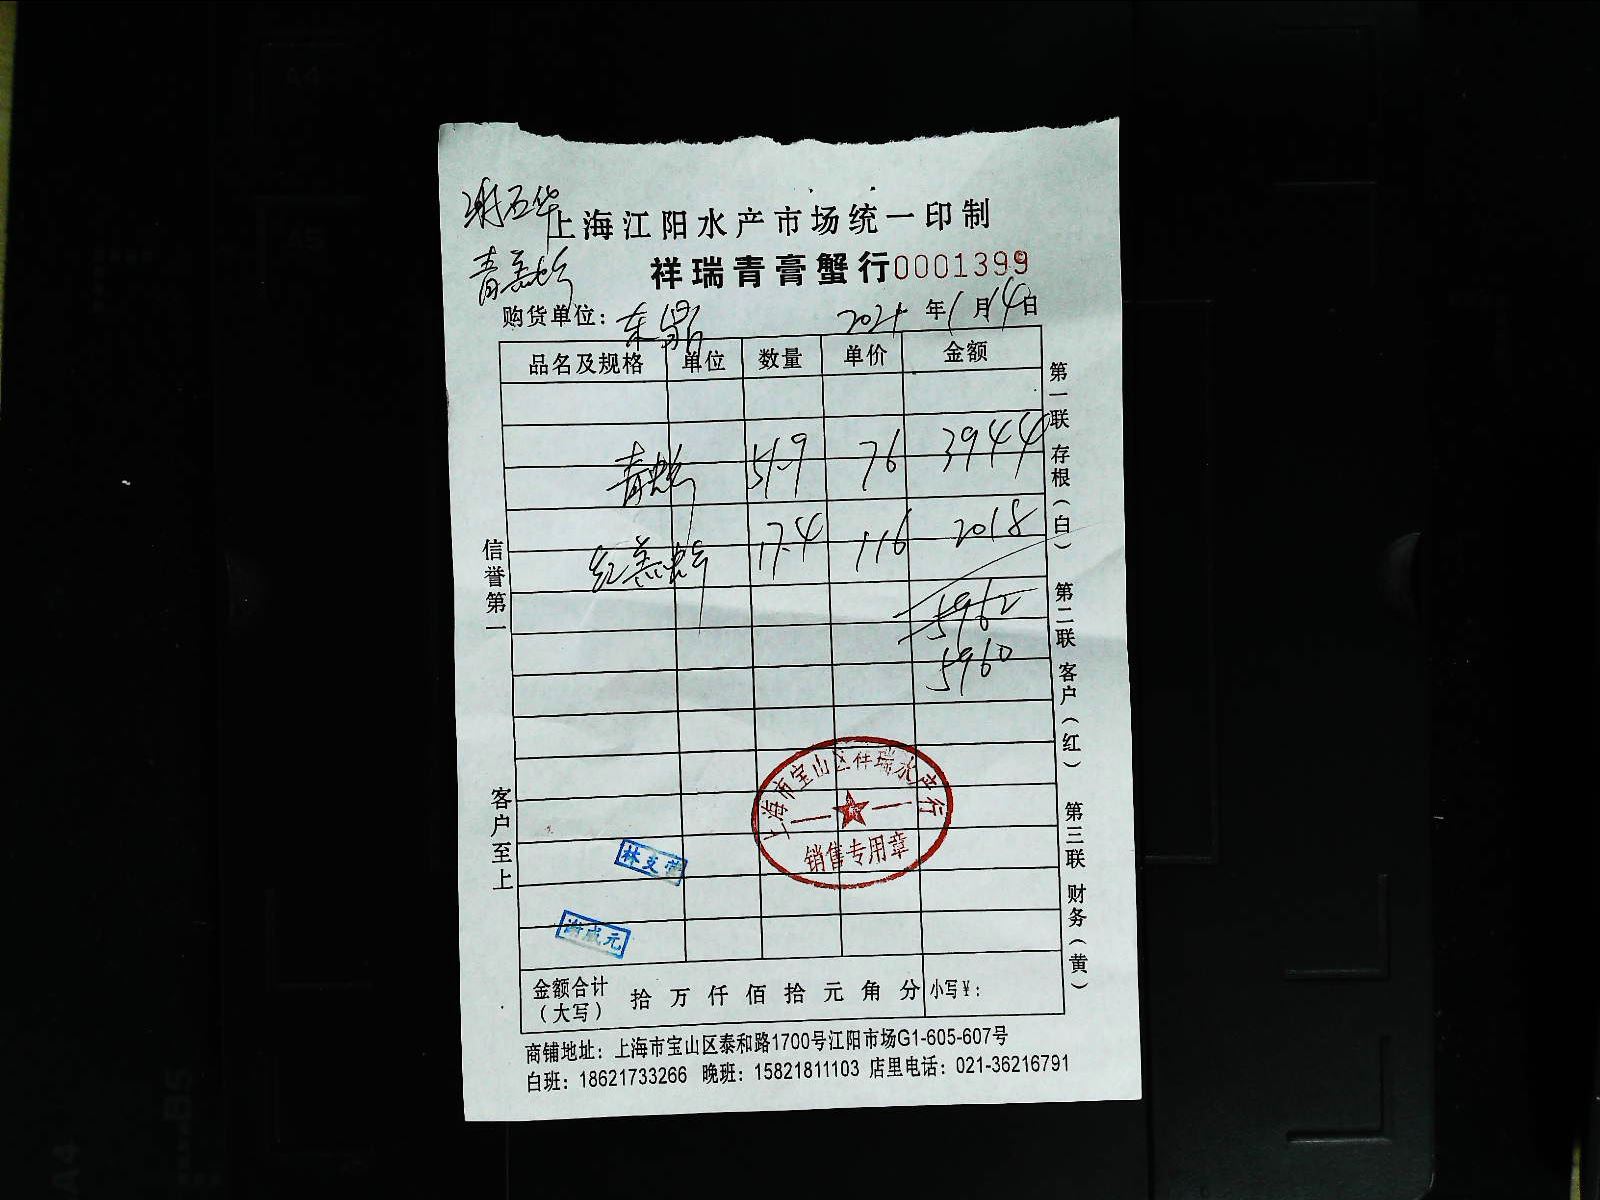 上海江阳水产市场统一印制
祥瑞青膏蟹行0001399
购货单位：东
2021年1月14日
品名及规格 单位 数量 单价 金额
青 51.9 76 3944
红 17.4 116 2018
5962
5960
信誉第一
客户至上
第一联 存根（白） 第二联 客户（红） 第三联 财务（黄）
上海市宝山区祥瑞水产行
销售专用章
金额合计（大写） 拾 万 仟 佰 拾 元 角 分 小写￥：
商铺地址：上海市宝山区泰和路1700号江阳市场G1-605-607号
白班：18621733266 晚班：15821811103 店里电话：021-36216791